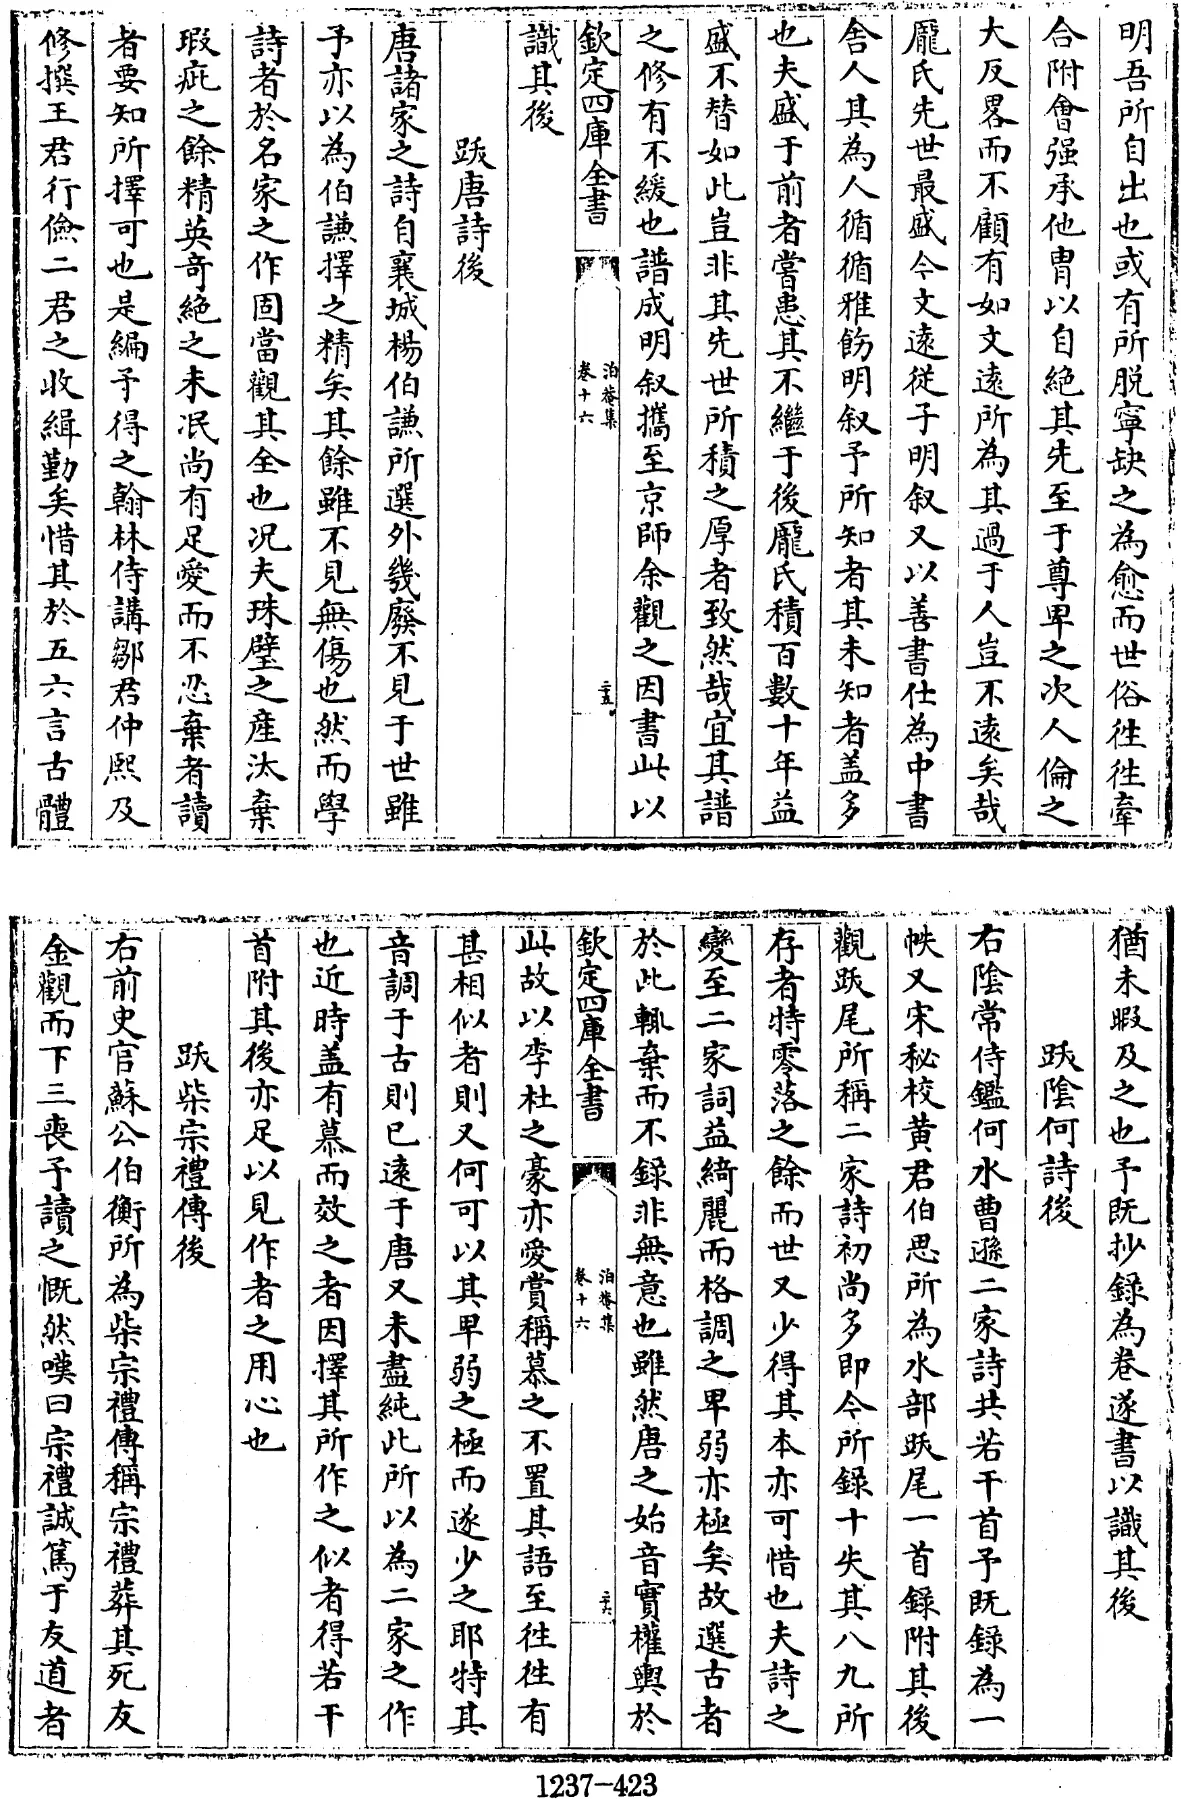 明吾所自出也或有所脱寧缺之為愈而世俗徃徃牽
合附會强承他胄以自絶其先至于尊卑之次人倫之
大反畧而不顧有如文遠所為其過于人豈不遠矣哉
龎氏先世最盛今文遠從子明叙又以善書仕為中書
舍人其為人循循雅飭明叙予所知者其未知者盖多
也夫盛于前者嘗患其不繼于後龎氏積百數十年益
盛不替如此豈非其先世所積之厚者致然哉宜其譜
之修有不緩也譜成明叙攜至京師余觀之因書此以
欽定四庫全書
泊菴集
卷十六
二五
識其後
跋唐詩後
唐諸家之詩自襄城楊伯謙所選外幾廢不見于世雖
予亦以為伯謙擇之精矣其餘雖不見無傷也然而學
詩者於名家之作固當觀其全也况夫珠璧之産汰棄
瑕疵之餘精英竒絶之未泯尚有足愛而不忍棄者讀
者要知所擇可也是編予得之翰林侍講鄒君仲熙及
修撰王君行儉二君之收緝勤矣惜其於五六言古體
猶未暇及之也予既抄録為卷遂書以識其後
跋陰何詩後
右陰常侍鏗何水曹遜二家詩共若干首予既録為一
帙又宋秘校黄君伯思所為水部跋尾一首録附其後
觀跋尾所稱二家詩初尚多即今所録十失其八九所
存者特零落之餘而世又少得其本亦可惜也夫詩之
變至二家詞益綺麗而格調之卑弱亦極矣故選古者
於此輒棄而不録非無意也雖然唐之始音實權輿於
欽定四庫全書
泊菴集
卷十六
二六
此故以李杜之豪亦愛賞稱慕之不置其語至徃徃有
甚相似者則又何可以其卑弱之極而遂少之耶特其
音調于古則已遠于唐又未盡純此所以為二家之作
也近時盖有慕而效之者因擇其所作之似者得若干
首附其後亦足以見作者之用心也
跋柴宗禮傳後
右前史官蘇公伯衡所為柴宗禮傳稱宗禮葬其死友
金觀而下三喪予讀之慨然嘆曰宗禮誠篤于友道者
1237-423